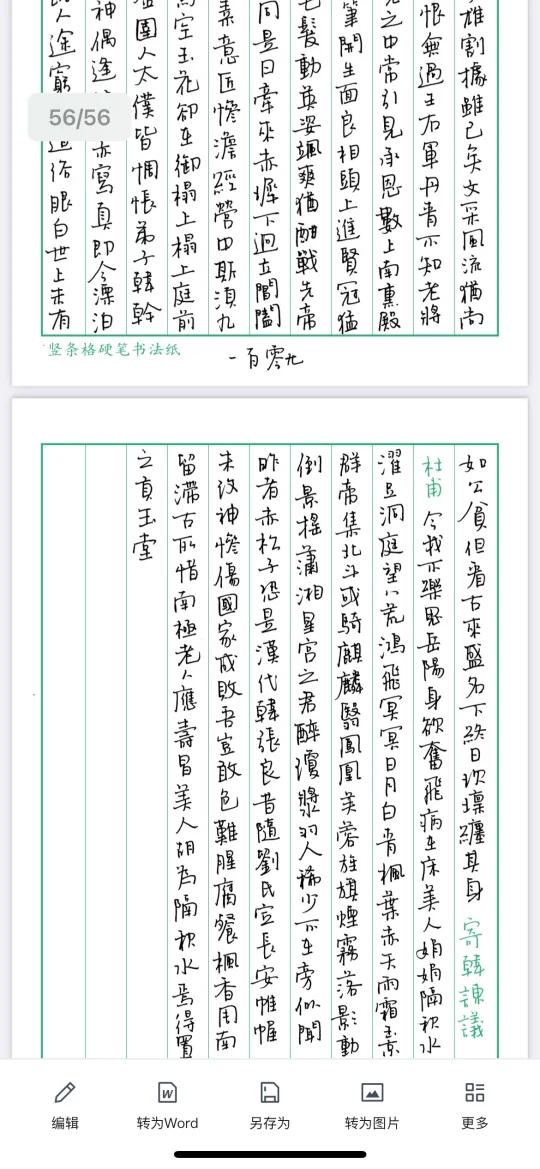 雄割據雖已矣文采風流猶尚
恨無過王右軍丹青不知老將
之中常引見承恩數上南熏殿
筆開生面良相頭上進賢冠猛
毛髮動英姿颯爽猶酣戰先帝
同是日牽來赤墀下迥立閶闔
素意匠慘澹經營中斯須九
空玉花卻在御榻上榻上庭前
圉人太僕皆惆悵弟子韓幹
神偶逢亦寫真即今漂泊
人途窮俗眼白世上未有
56/56
竖条格硬笔书法纸
一百零九
如公貧但看古來盛名下終日坎壈纏其身 寄韓諫議
杜甫 今我不樂思岳陽身欲奮飛病在床美人娟娟隔秋水
濯足洞庭望八荒鴻飛冥冥日月白青楓葉赤天雨霜玉京
群帝集北斗或騎麒麟翳鳳凰芙蓉旌旗煙霧落影動
倒景搖瀟湘星宮之君醉瓊漿羽人稀少不在旁似聞
昨者赤松子恐是漢代韓張良昔隨劉氏定長安帷幄
未改神慘傷國家成敗吾豈敢色難腥腐餐楓香周南
留滯古所惜南極老人應壽昌美人胡為隔秋水焉得置
之貢玉堂
编辑
转为Word
另存为
转为图片
更多